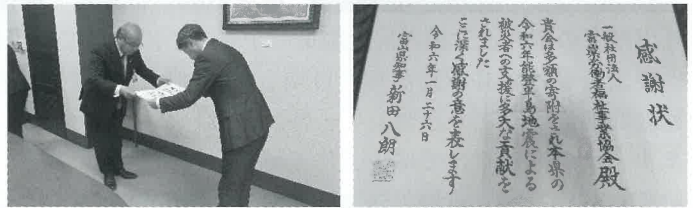 感謝状
一般社団法人
富岸労働者福祉事業協会殿
貴会は多額の寄附をされ本県の
令和六年能登半島地震による
被災者への支援に多大な貢献を
されました
ここに深く感謝の意を表します
令和六年一月二十六日
富山県知事 新田八朗